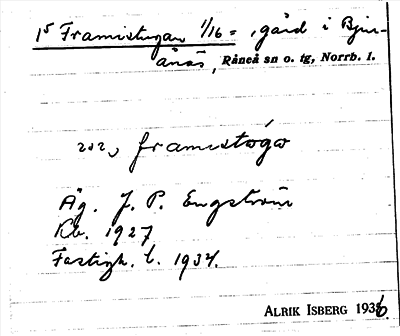 1⁵ Framistugan 1/16 =, gård i Bjur-
ånäs, Råneå sn o. tg, Norrb. l.
framistógo
Äg. J. P. Engström
Kb. 1927
Fastigh. l. 1934.
ALRIK ISBERG 1936